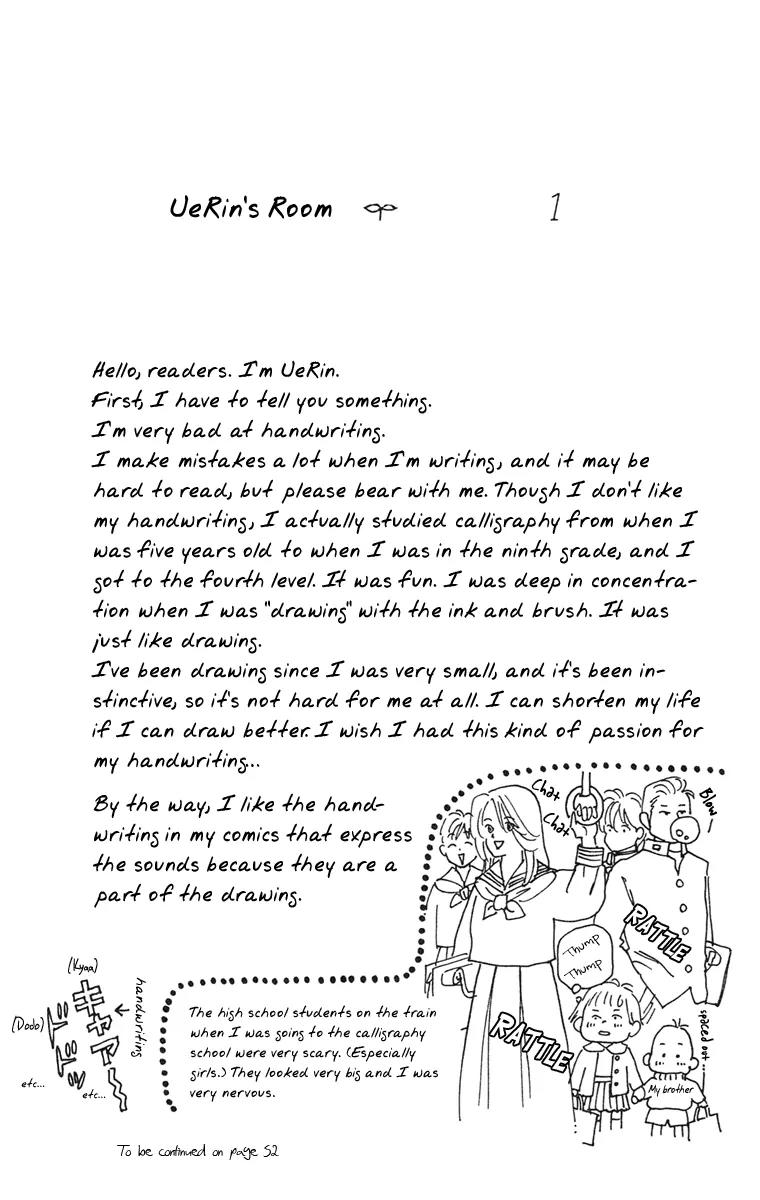 UeRin's Room 1
Hello, readers. I'm UeRin.
First, I have to tell you something.
I'm very bad at handwriting.
I make mistakes a lot when I'm writing, and it may be
hard to read, but please bear with me. Though I don't like
my handwriting, I actually studied calligraphy from when I
was five years old to when I was in the ninth grade, and I
got to the fourth level. It was fun. I was deep in concentra-
tion when I was "drawing" with the ink and brush. It was
just like drawing.
I've been drawing since I was very small, and it's been in-
stinctive, so it's not hard for me at all. I can shorten my life
if I can draw better. I wish I had this kind of passion for
my handwriting...
By the way, I like the hand-
writing in my comics that express
the sounds because they are a
part of the drawing.
Chat
Chat
Blow
RATTLE
Thump
Thump
RATTLE
spaced out...
My brother
(Kyaa)
キャアー
handwriting
(Dodo)
ドドド
etc...
etc...
The high school students on the train
when I was going to the calligraphy
school were very scary. (Especially
girls.) They looked very big and I was
very nervous.
To be continued on page 52